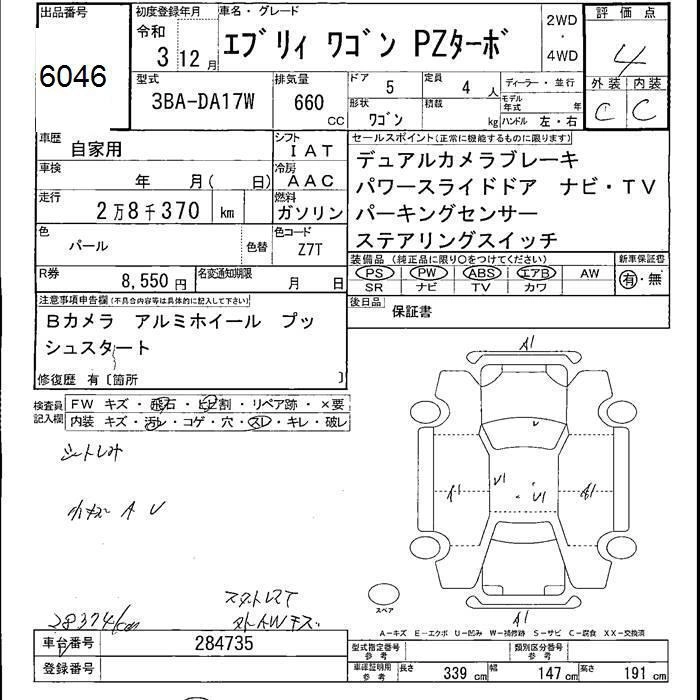 出品番号 初度登録年月 車名・グレード 2WD 評価点
6046 令和 3 12月 エブリィ ワゴン PZターボ ・ 4WD 4
型式 排気量 ドア 5 定員 4人 ディーラー・並行 外装 内装
3BA-DA17W 660 CC 形状 ワゴン 積載 kg モデル年式 年 C C
ハンドル 左・右
車歴 自家用 シフト IAT セールスポイント(正常に機能するものに限ります)
車検 年 月( 日) 冷房 AAC デュアルカメラブレーキ
走行 2万8千370 km 燃料 ガソリン パワースライドドア ナビ・TV
パーキングセンサー
色 パール 色替 色コード Z7T ステアリングスイッチ
R券 8,550円 名変通知期限 月 日 装備品(純正品に限り○をつけてください) 新車保証書
PS PW ABS エアB AW 有・無
SR ナビ TV カワ
注意事項申告欄(不具合内容等は具体的に記入して下さい) 後日品 保証書
Bカメラ アルミホイール プッ
シュスタート
修復歴 有〔箇所 〕
検査員記入欄 FW キズ・飛石・ヒビ割・リペア跡・×要
内装 キズ・汚レ・コゲ・穴・スレ・キレ・破レ
A1
シートしみ
U
U1 U1
A1 A1
小キズ A U
スペア
28374km
A1
A-キズ E-エクボ U-凹み W-補修跡 S-サビ C-腐食 XX-交換済
車台番号 284735 型式指定番号 参考 類別区分番号 参考
登録番号 車庫証明用 参考 長さ 339cm 幅 147cm 高さ 191cm